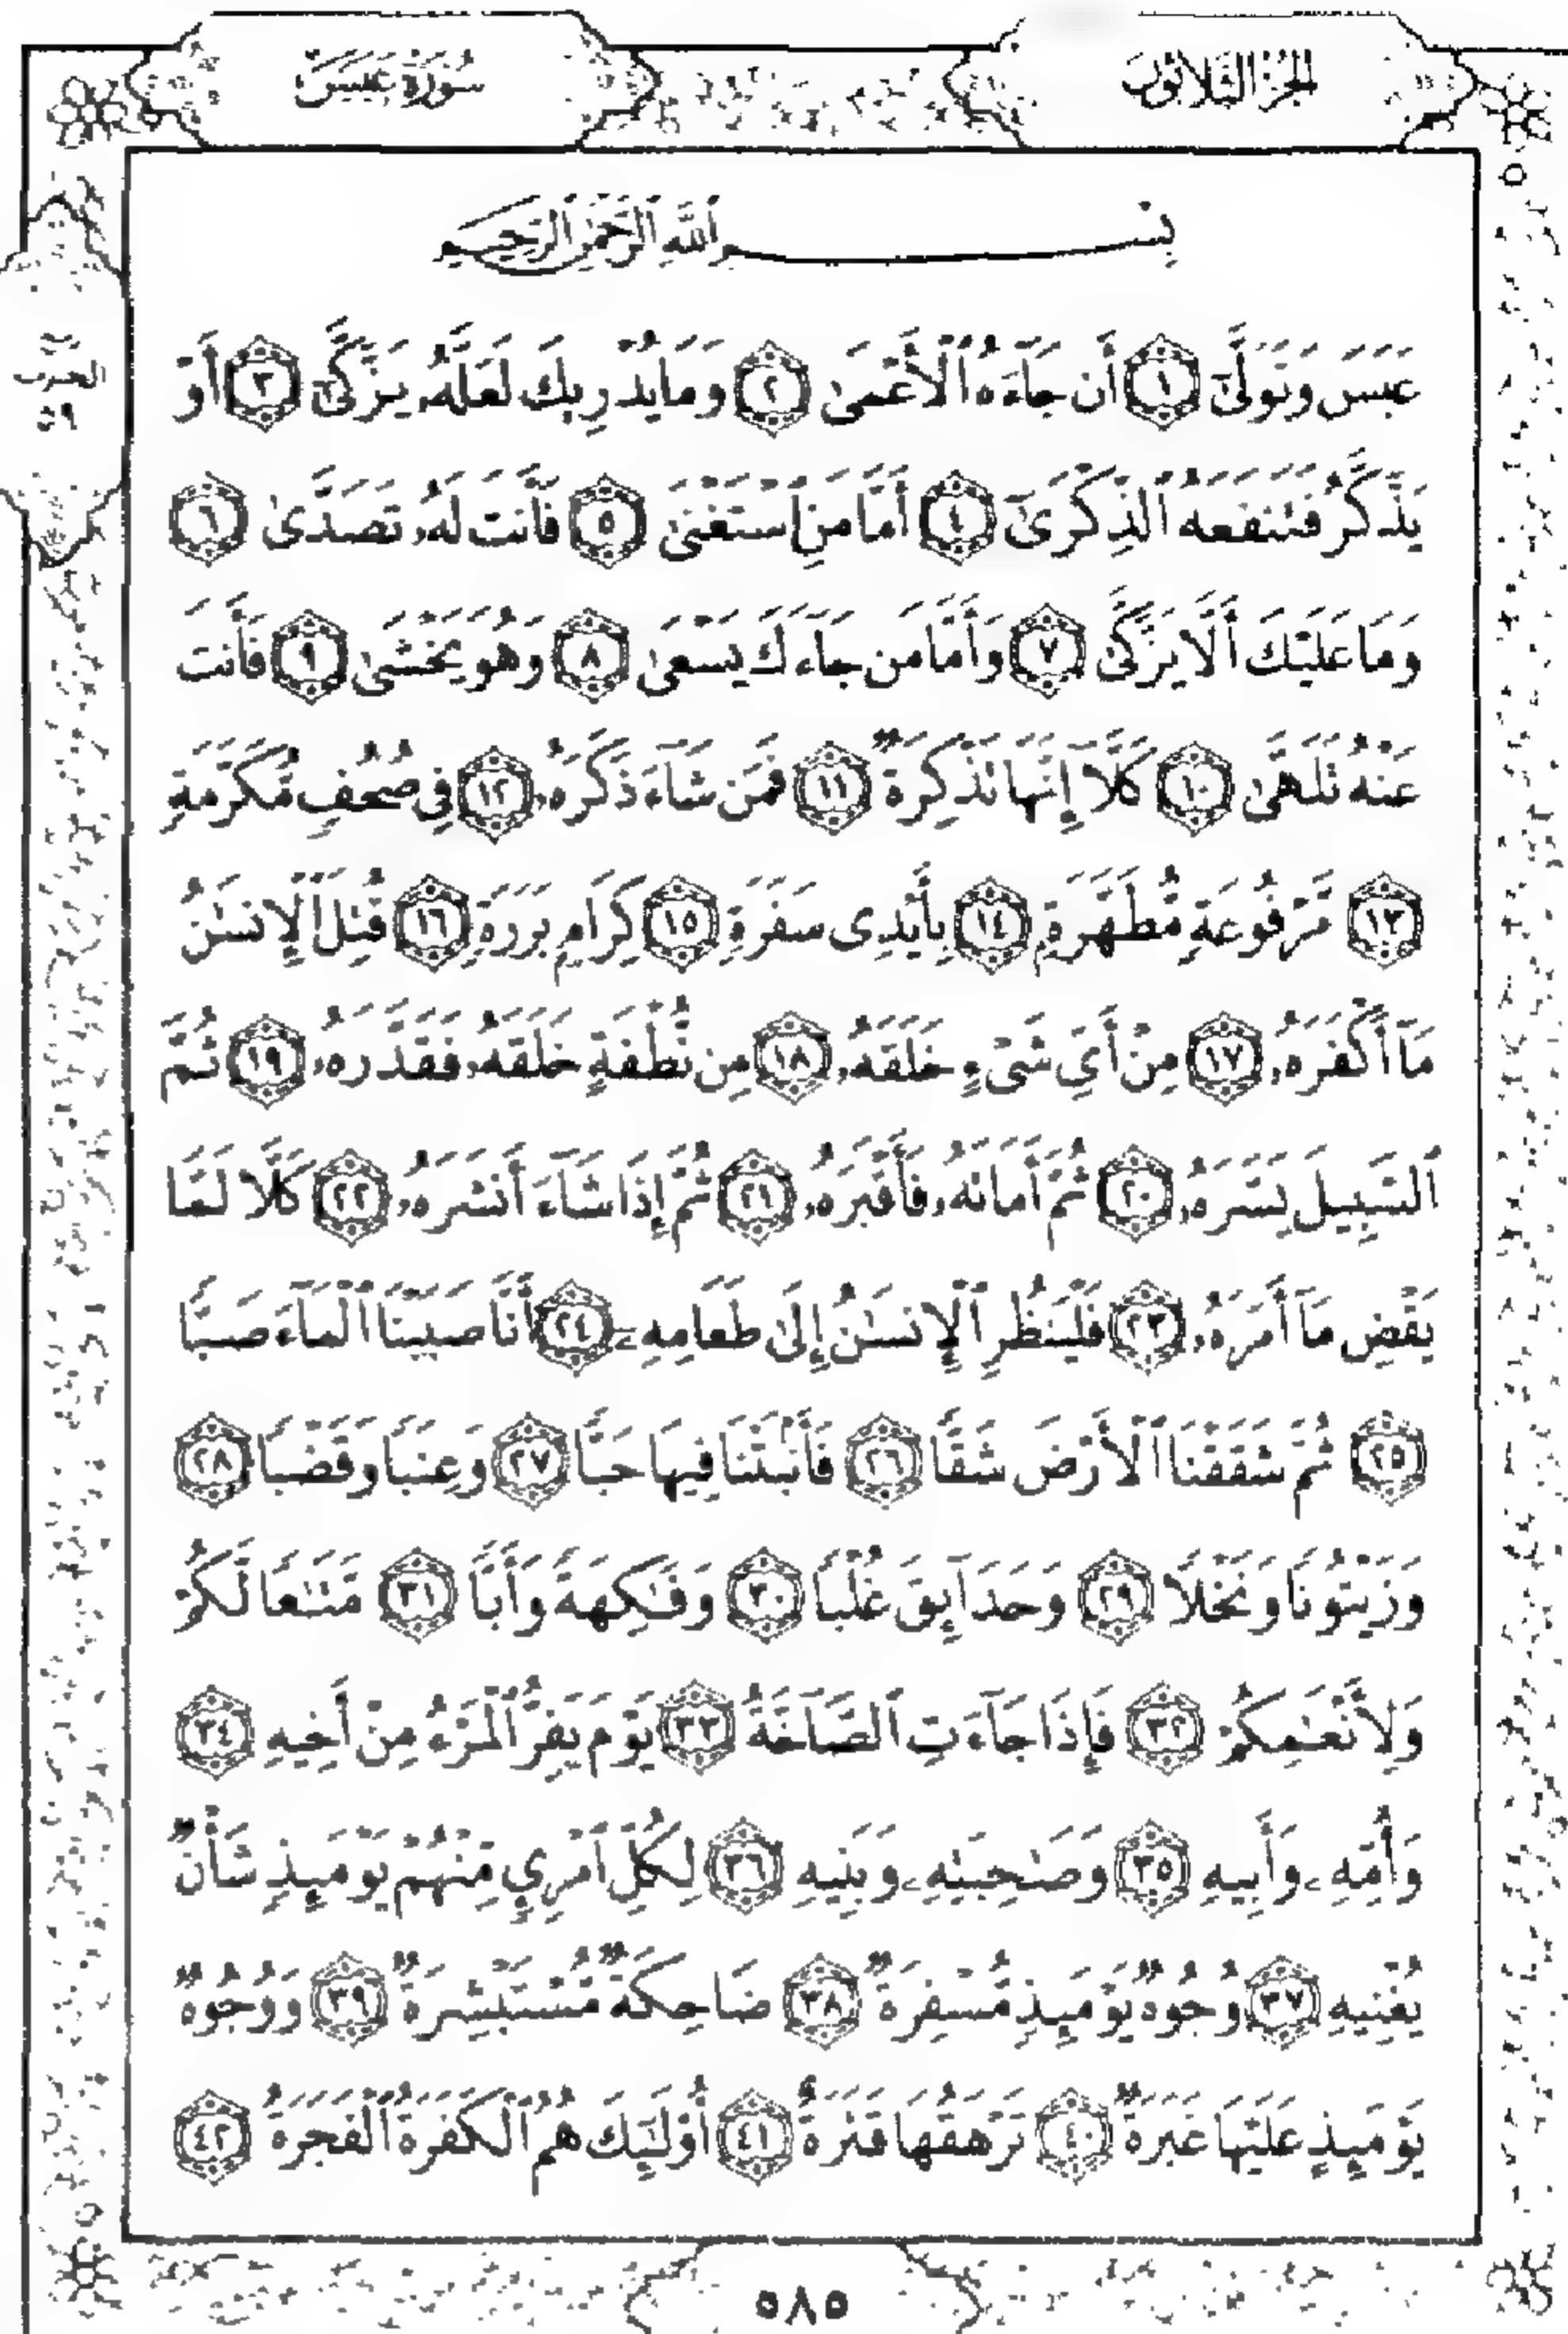 الجزء الثلاثون
سورة عبس
الحزب
٥٩
بِسْمِ ٱللَّهِ ٱلرَّحْمَٰنِ ٱلرَّحِيمِ
عَبَسَ وَتَوَلَّىٰٓ ١ أَن جَآءَهُ ٱلْأَعْمَىٰ ٢ وَمَا يُدْرِيكَ لَعَلَّهُۥ يَزَّكَّىٰٓ ٣ أَوْ
يَذَّكَّرُ فَتَنفَعَهُ ٱلذِّكْرَىٰٓ ٤ أَمَّا مَنِ ٱسْتَغْنَىٰ ٥ فَأَنتَ لَهُۥ تَصَدَّىٰ ٦
وَمَا عَلَيْكَ أَلَّا يَزَّكَّىٰ ٧ وَأَمَّا مَن جَآءَكَ يَسْعَىٰ ٨ وَهُوَ يَخْشَىٰ ٩ فَأَنتَ
عَنْهُ تَلَهَّىٰ ١٠ كَلَّآ إِنَّهَا تَذْكِرَةٌ ١١ فَمَن شَآءَ ذَكَرَهُۥ ١٢ فِى صُحُفٍ مُّكَرَّمَةٍ
١٣ مَّرْفُوعَةٍ مُّطَهَّرَةٍۭ ١٤ بِأَيْدِى سَفَرَةٍ ١٥ كِرَامٍۭ بَرَرَةٍ ١٦ قُتِلَ ٱلْإِنسَٰنُ
مَآ أَكْفَرَهُۥ ١٧ مِنْ أَىِّ شَىْءٍ خَلَقَهُۥ ١٨ مِن نُّطْفَةٍ خَلَقَهُۥ فَقَدَّرَهُۥ ١٩ ثُمَّ
ٱلسَّبِيلَ يَسَّرَهُۥ ٢٠ ثُمَّ أَمَاتَهُۥ فَأَقْبَرَهُۥ ٢١ ثُمَّ إِذَا شَآءَ أَنشَرَهُۥ ٢٢ كَلَّا لَمَّا
يَقْضِ مَآ أَمَرَهُۥ ٢٣ فَلْيَنظُرِ ٱلْإِنسَٰنُ إِلَىٰ طَعَامِهِۦٓ ٢٤ أَنَّا صَبَبْنَا ٱلْمَآءَ صَبًّا
٢٥ ثُمَّ شَقَقْنَا ٱلْأَرْضَ شَقًّا ٢٦ فَأَنۢبَتْنَا فِيهَا حَبًّا ٢٧ وَعِنَبًا وَقَضْبًا ٢٨
وَزَيْتُونًا وَنَخْلًا ٢٩ وَحَدَآئِقَ غُلْبًا ٣٠ وَفَٰكِهَةً وَأَبًّا ٣١ مَّتَٰعًا لَّكُمْ
وَلِأَنْعَٰمِكُمْ ٣٢ فَإِذَا جَآءَتِ ٱلصَّآخَّةُ ٣٣ يَوْمَ يَفِرُّ ٱلْمَرْءُ مِنْ أَخِيهِ ٣٤
وَأُمِّهِۦ وَأَبِيهِ ٣٥ وَصَٰحِبَتِهِۦ وَبَنِيهِ ٣٦ لِكُلِّ ٱمْرِئٍ مِّنْهُمْ يَوْمَئِذٍ شَأْنٌ
يُغْنِيهِ ٣٧ وُجُوهٌ يَوْمَئِذٍ مُّسْفِرَةٌ ٣٨ ضَاحِكَةٌ مُّسْتَبْشِرَةٌ ٣٩ وَوُجُوهٌ
يَوْمَئِذٍ عَلَيْهَا غَبَرَةٌ ٤٠ تَرْهَقُهَا قَتَرَةٌ ٤١ أُو۟لَٰٓئِكَ هُمُ ٱلْكَفَرَةُ ٱلْفَجَرَةُ ٤٢
٥٨٥